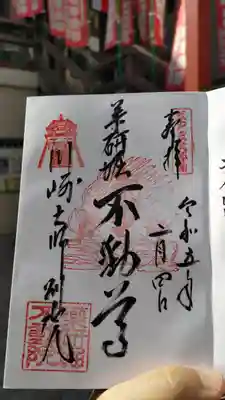 奉拝
令和五年
二月四日
薬研堀
不動尊
川崎大師別院